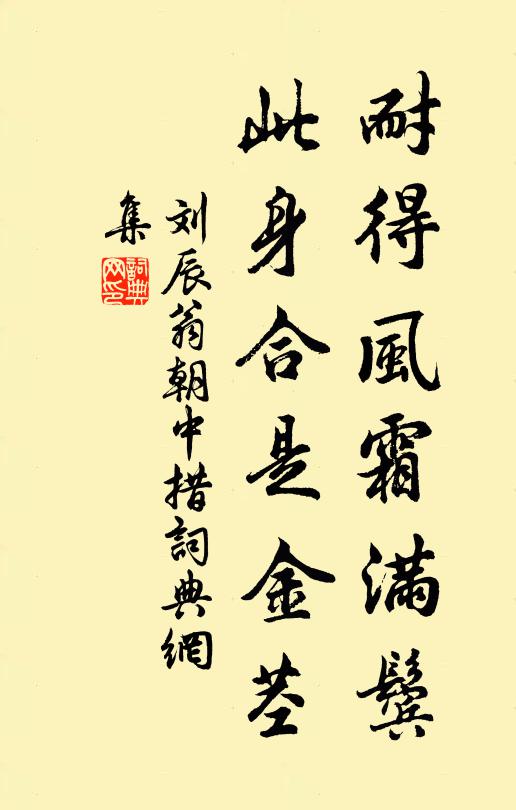 耐得風霜滿鬢
此身合是金莖
刘辰翁朝中措詞典網
集
詞典
网印